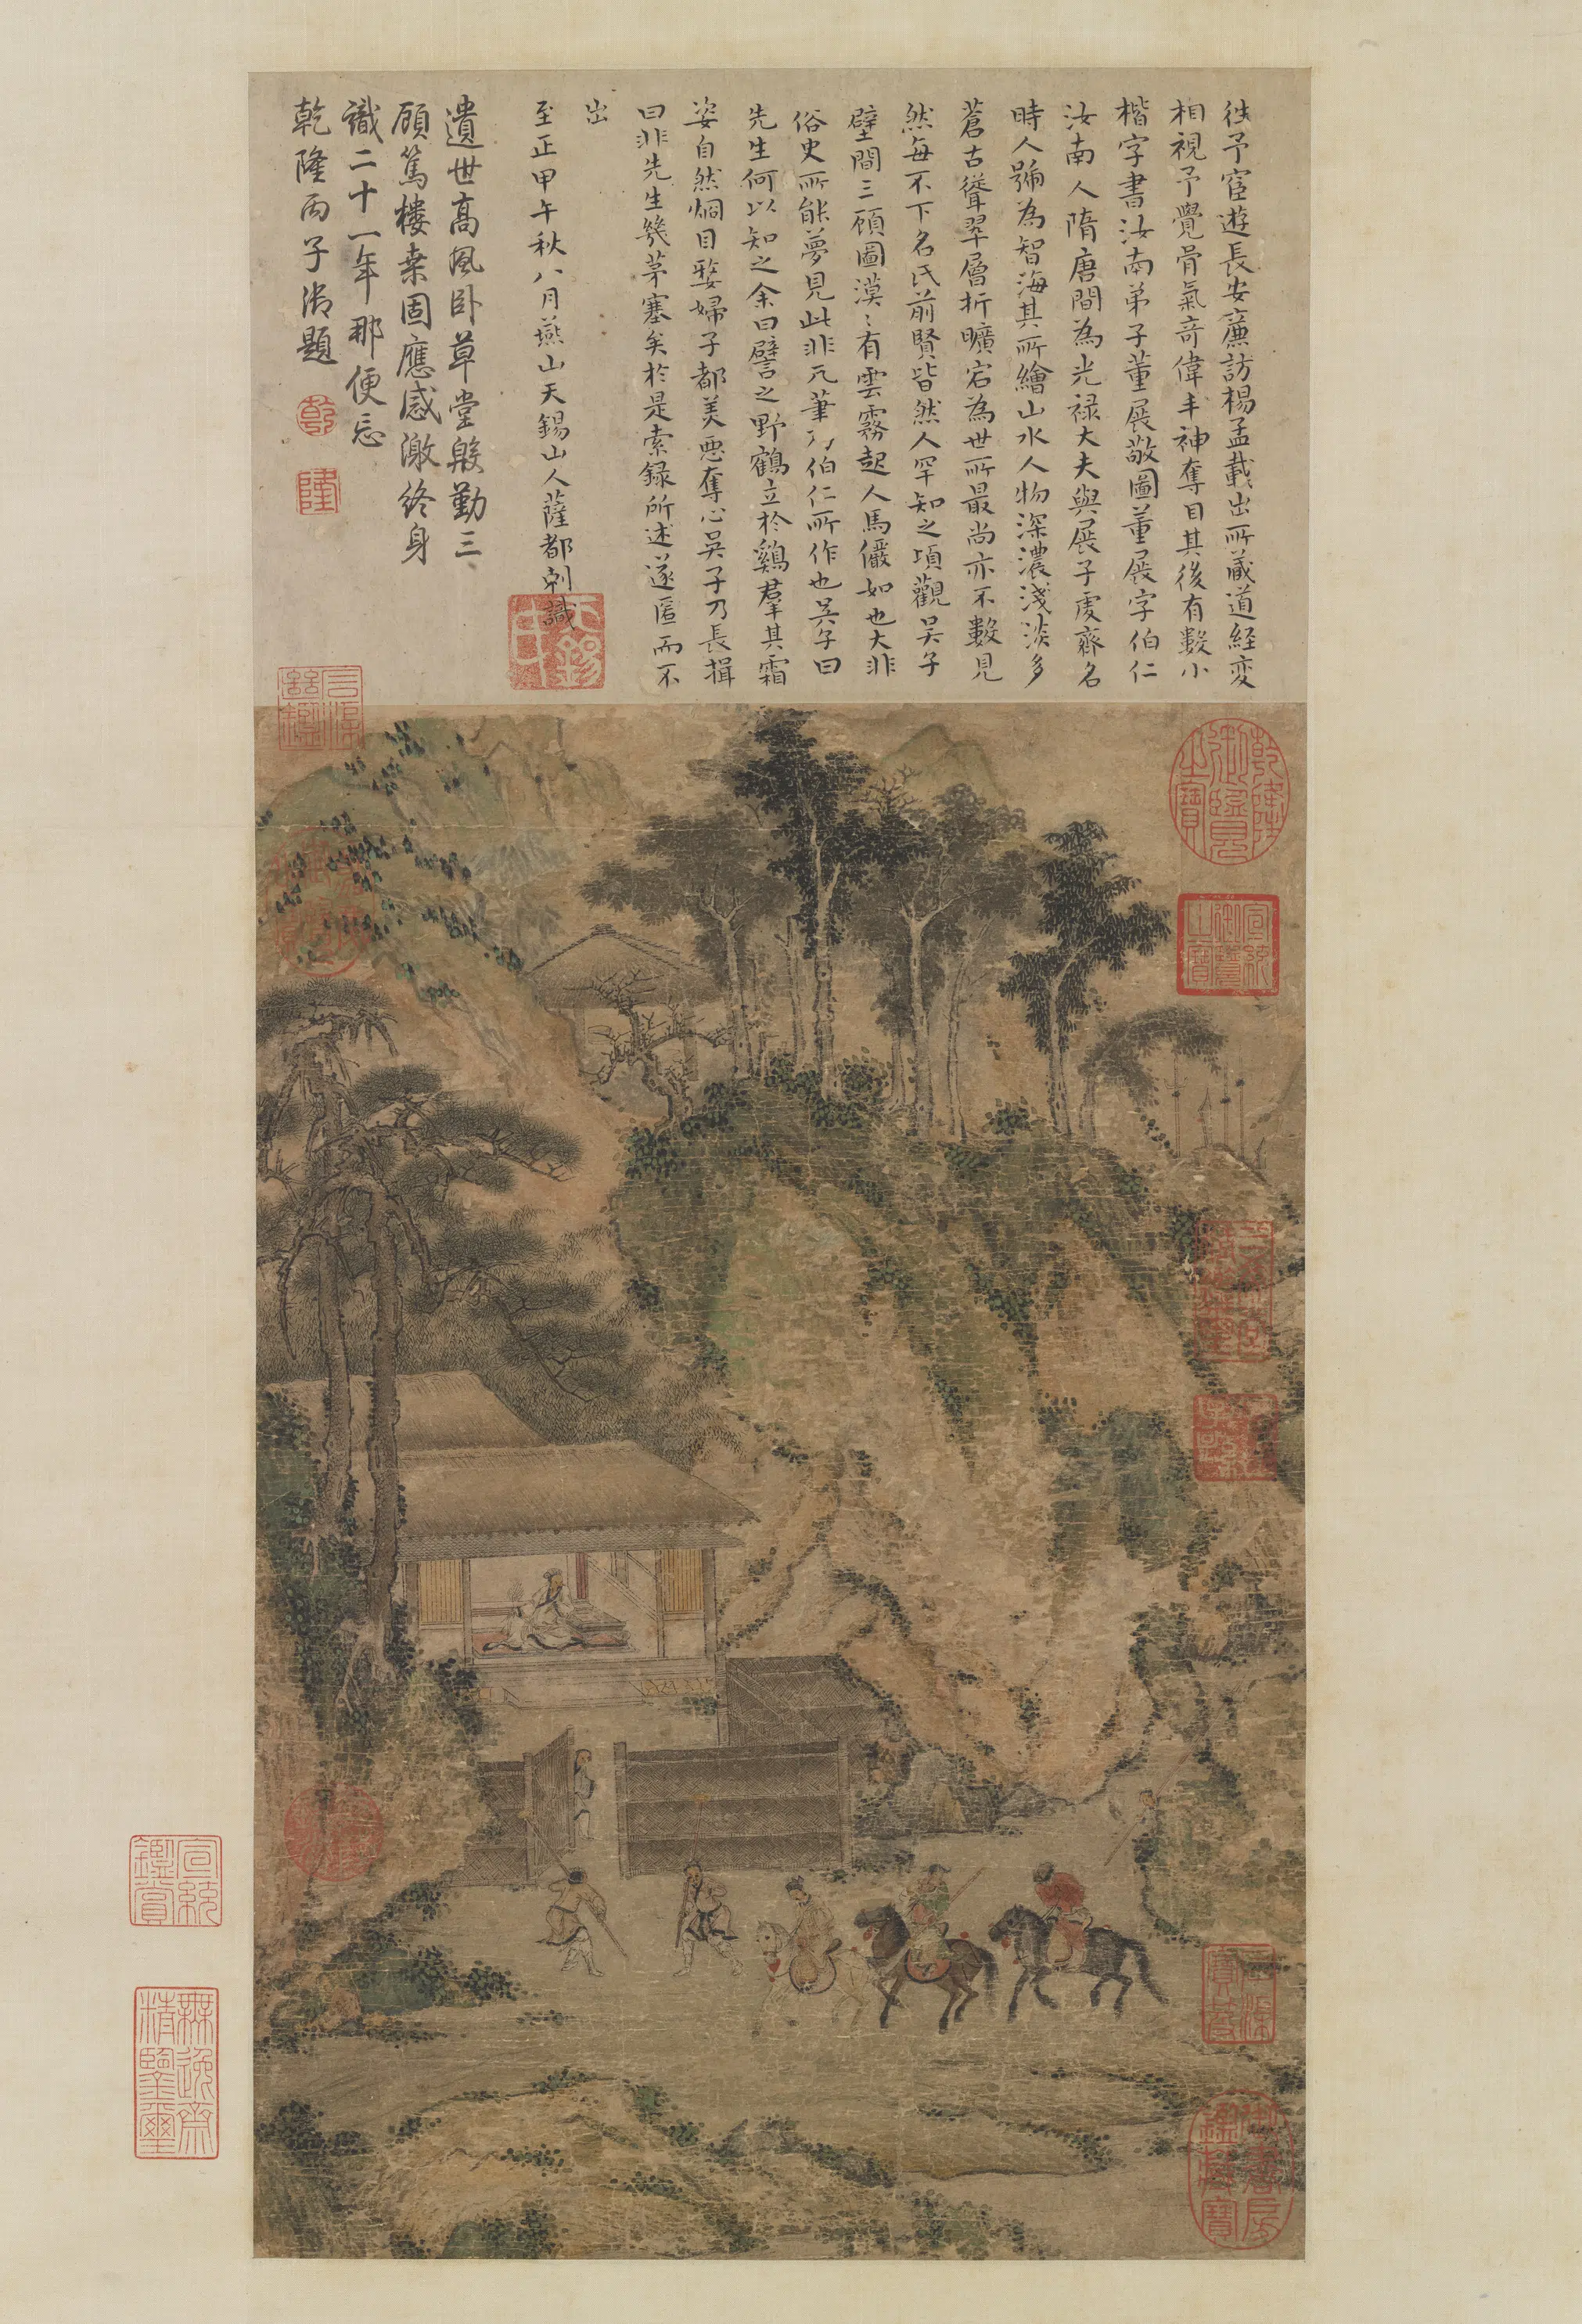 往予宦遊長安廉訪楊孟載出所藏道經变
相視予覺骨氣竒偉丰神奪目其後有數小
楷字書汝南弟子董展敬圖董展字伯仁
汝南人隋唐間為光禄大夫與展子虔齊名
時人號為智海其所繪山水人物深濃淺淡多
蒼古聳翠層折曠宕為世所最尚亦不數見
然每不下名氏前賢皆然人罕知之項觀吴子
壁間三顧圖漠〻有雲霧起人馬儼如也大非
俗史所能夢見此非元筆乃伯仁所作也吴子曰
先生何以知之余曰譬之野鶴立於鷄羣其霜
姿自然烱目嫠婦子都美惡奪心吴子乃長揖
曰非先生幾茅塞矣於是索録所述遂匿而不
出
至正甲午秋八月燕山天錫山人薩都剌識
遺世高風卧草堂殷勤三
顧篤樓桒固應感激終身
識二十一年那便忘
乾隆丙子御題
乾
隆
乾隆御覽之寶
宣統御覽之寶
宣統鑑賞
無逸齋精鑒璽
御書房鑑藏寶